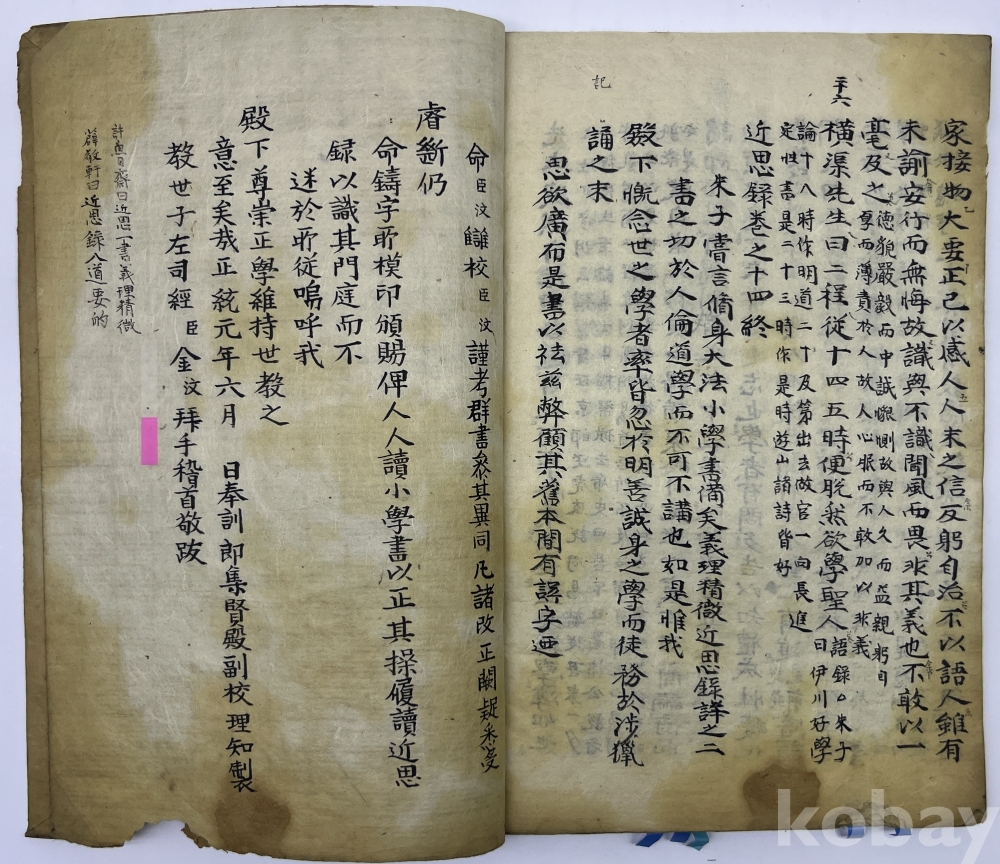 家接物大要正己以感人人未之信反躬自治不以語人雖有
未諭安行而無悔故識與不識聞風而畏非其義也不敢以一
毫及之
德貌嚴毅而中誠懇惻故與人久而益親躬自
厚而薄責於人故人心服而不敢加以非義
橫渠先生曰二程從十四五時便脫然欲學聖人
語錄○朱子
曰伊川好學
論十八時作明道二十及第出去做官一向長進
定性書是二十三時作是時遊山諸詩皆好
近思錄卷之十四終
朱子嘗言脩身大法小學書備矣義理精微近思錄詳之二
書之切於人倫道學而不可不講也如是惟我
殿下慨念世之學者率皆忽於明善誠身之學而徒務於涉獵
誦之末
記
思欲廣布是書以祛玆弊顧其舊本間有誤字迺
二十六
命臣汶讎校臣汶謹考群書參其異同凡諸改正闕疑悉受
睿斷仍
命鑄字所模印頒賜俾人人讀小學書以正其操履讀近思
録以識其門庭而不
迷於所從嗚呼我
殿下尊崇正學維持世教之
意至矣哉正統元年六月 日奉訓郎集賢殿副校理知製
教世子左司經臣金汶拜手稽首敬跋
許魯齋曰近思一書義理精微
薛敬軒曰近思錄入道要的
kobay